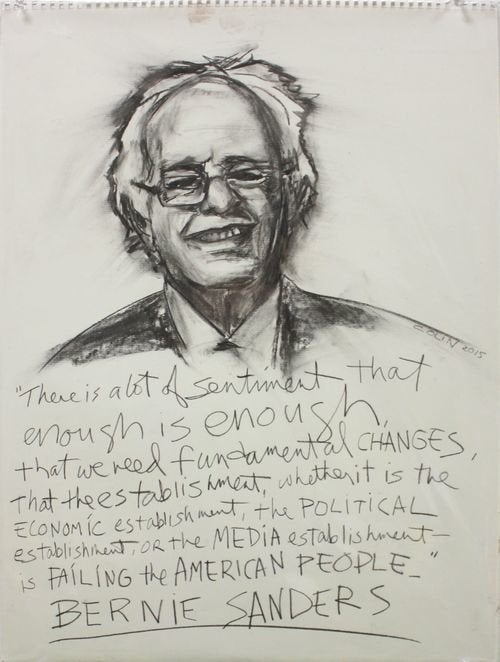 COLIN 2015
"There is a lot of sentiment that
enough is enough,
that we need fundamental CHANGES,
that the establishment, whether it is the
ECONOMIC establishment, the POLITICAL
establishment, OR the MEDIA establishment—
is FAILING the AMERICAN PEOPLE_"
BERNIE SANDERS